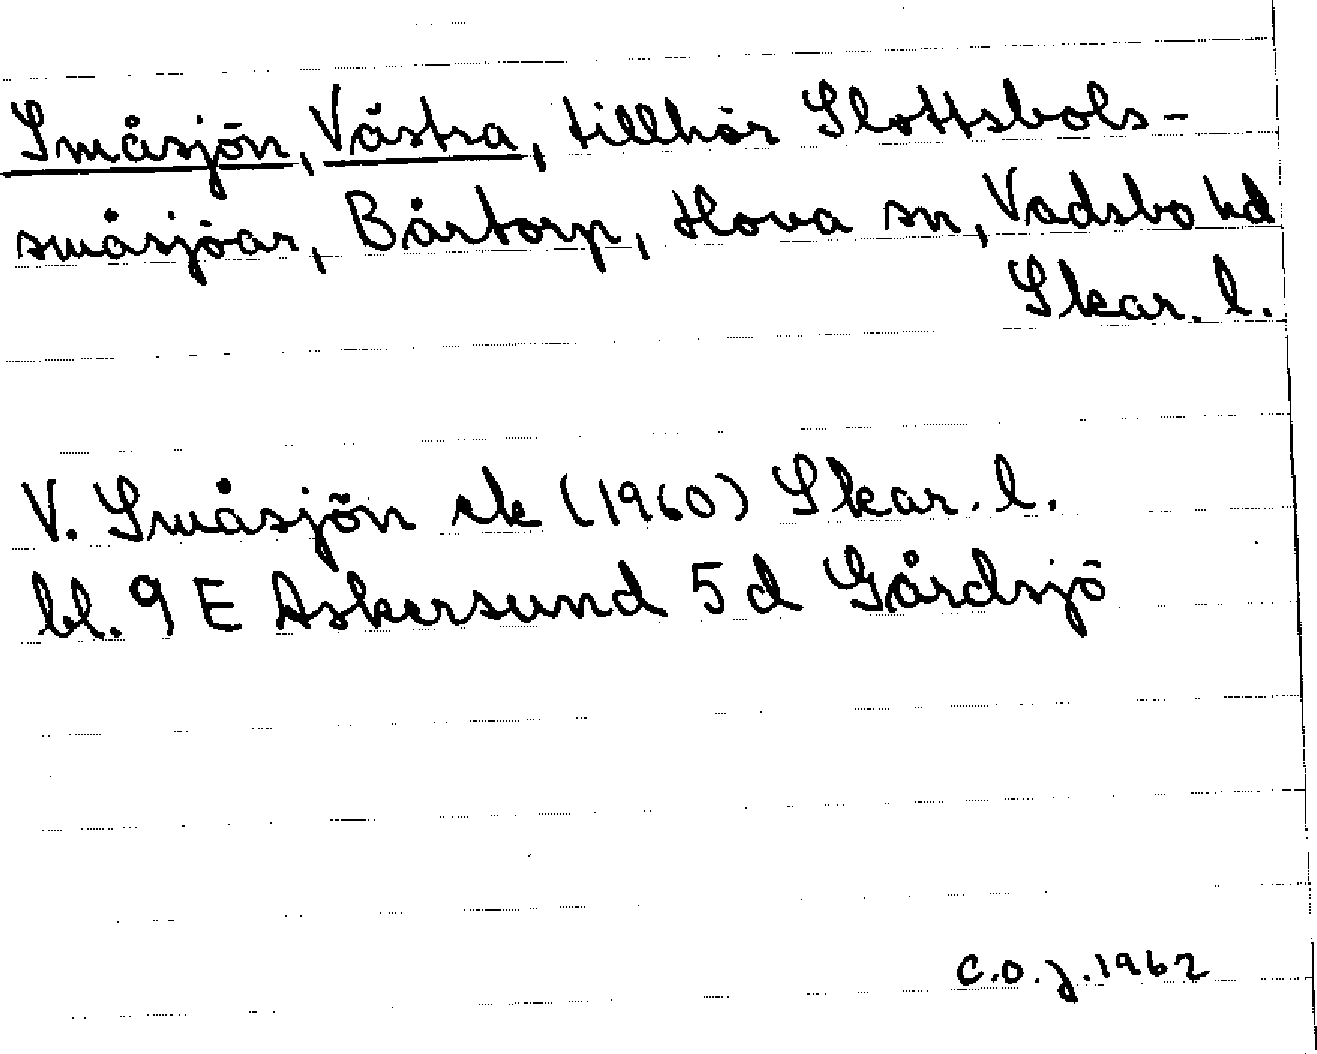 Småsjön, Västra, tillhör Slottsbols-
småsjöar, Bårtorp, Hova sn, Vadsbo hd
Skar. l.
V. Småsjön ek (1960) Skar. l.
bl. 9 E Askersund 5 d Gårdsjö
C.O.J. 1962